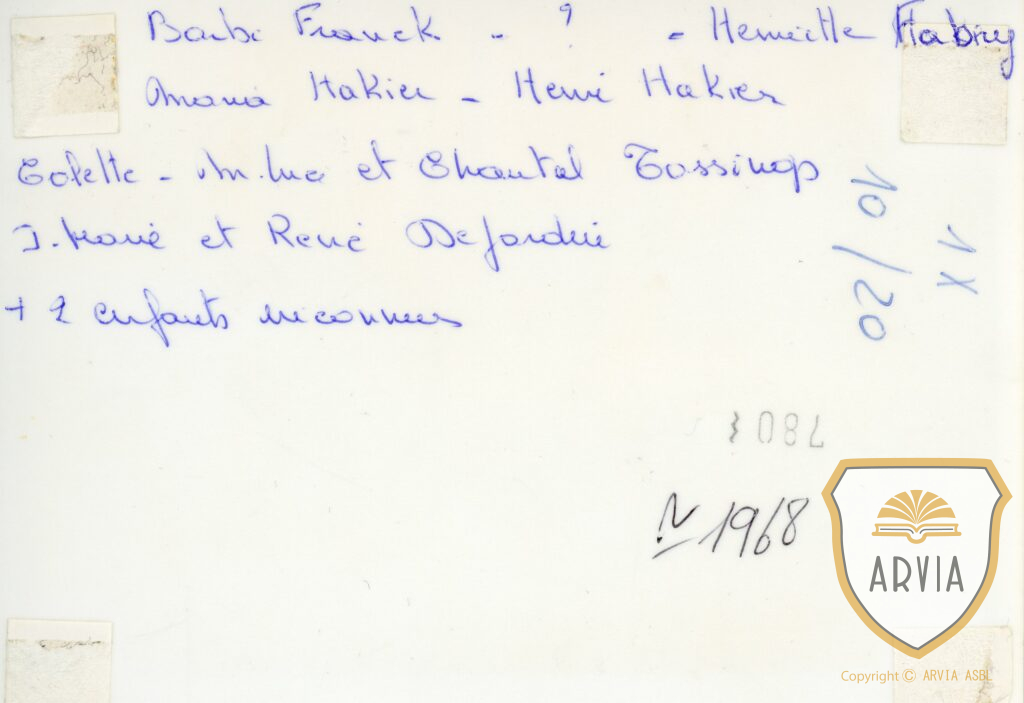 Barbe Franck - ? - Henriette Habry
Maria Hakier - Henri Hakier
Colette - M. Luce et Chantal Tossings
J. Marie et René Dejardin
+ 2 enfants inconnus
10/20
1X
N 1968
ARVIA
Copyright © ARVIA ASBL